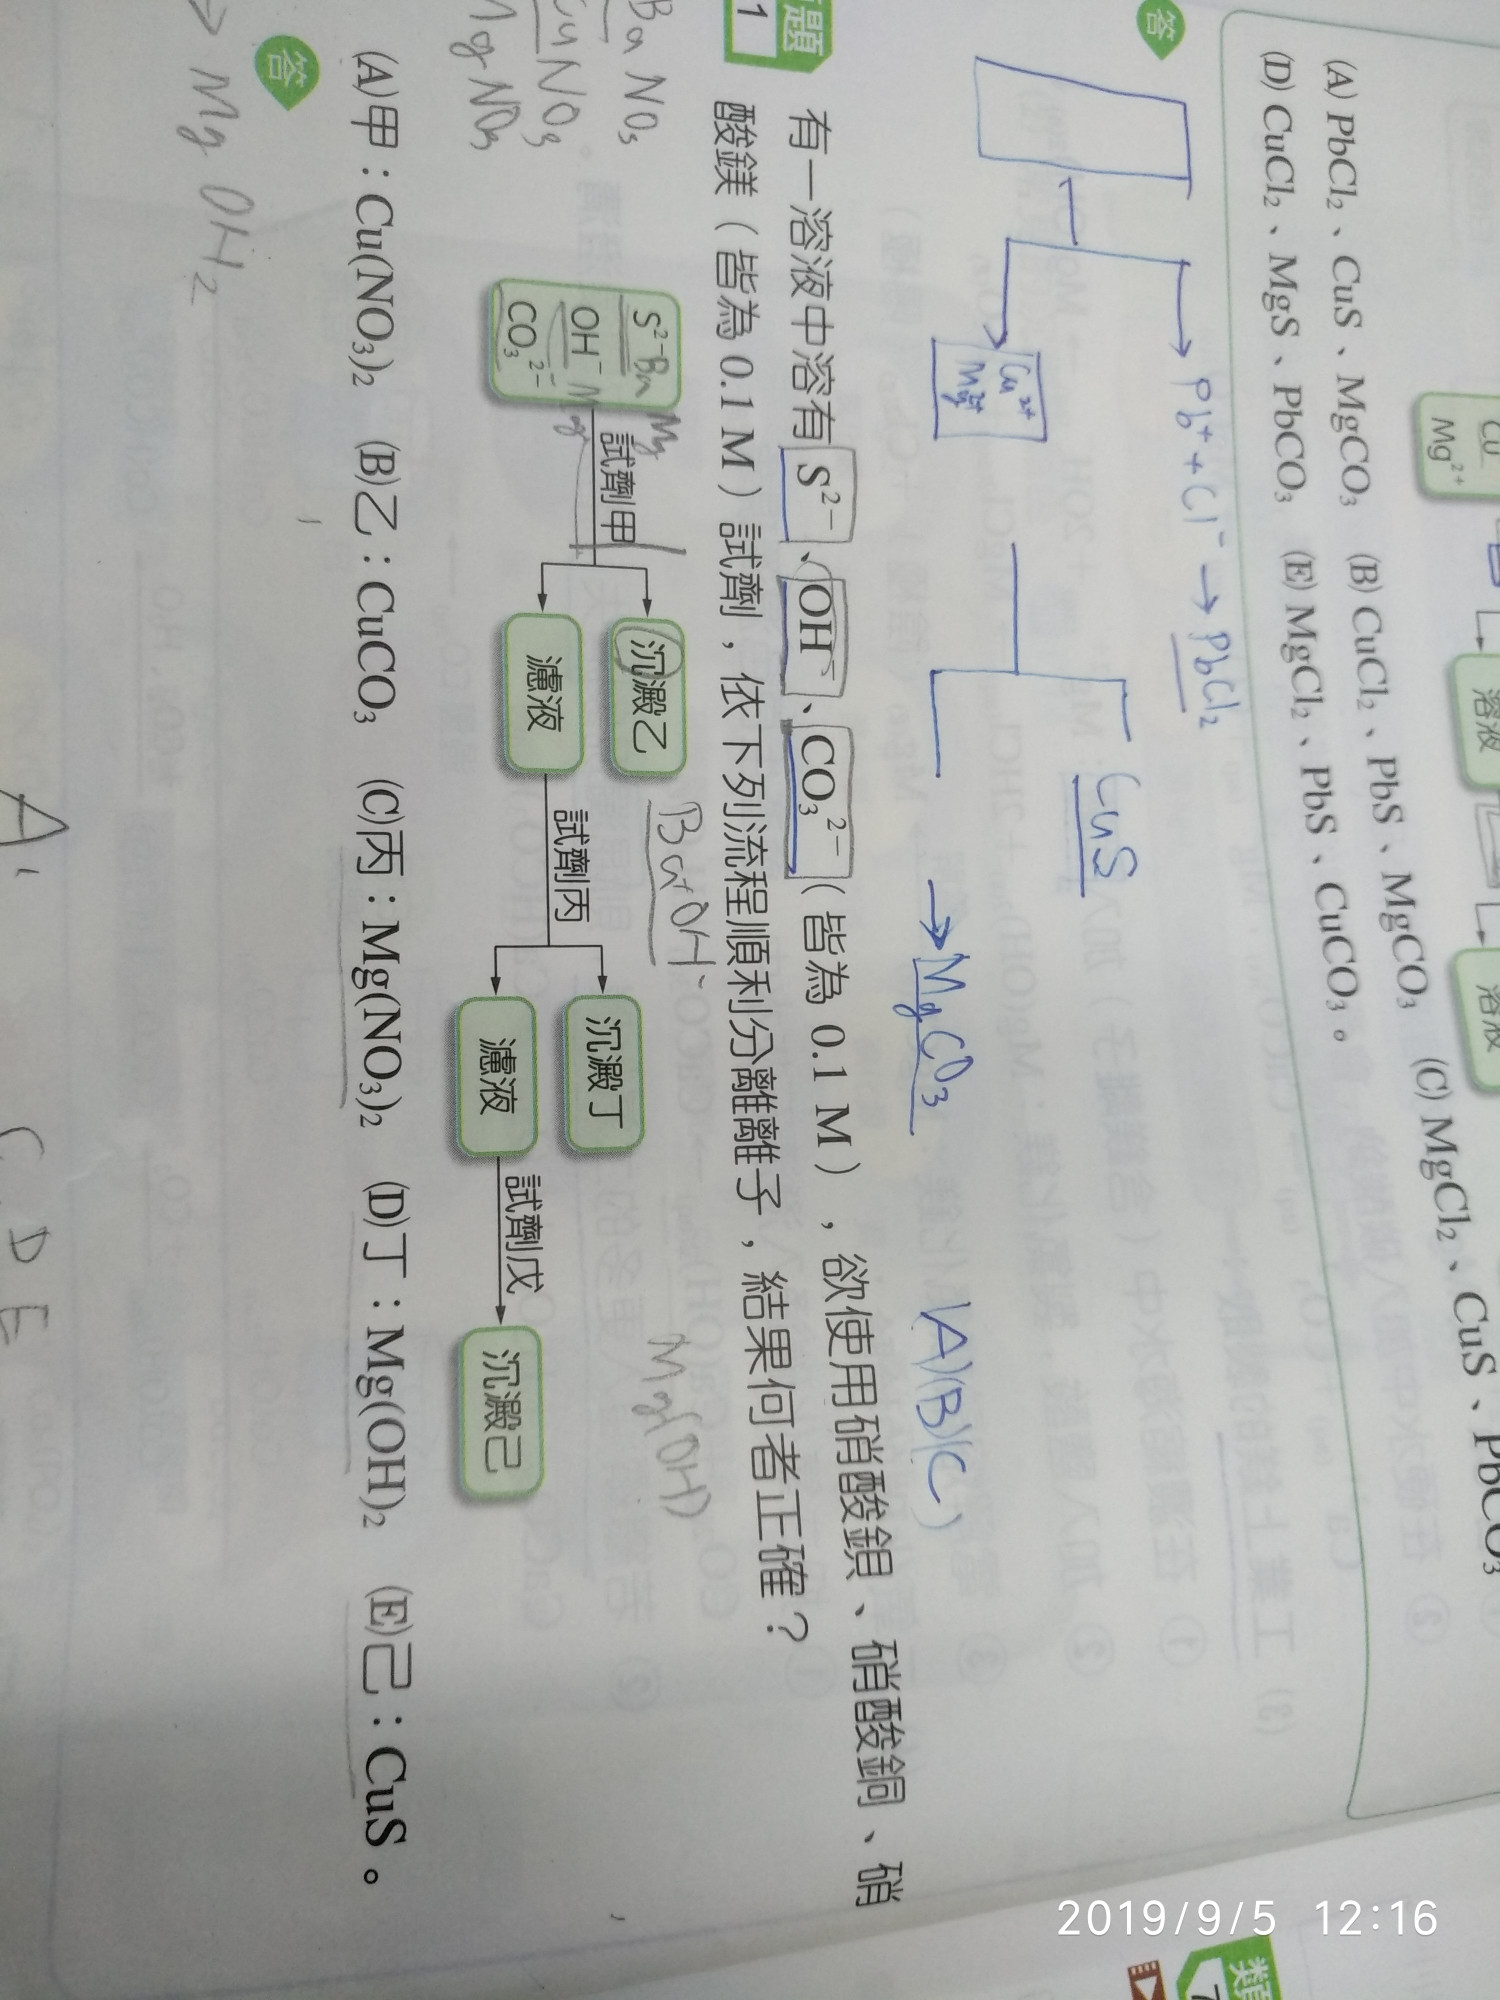 Cu
Mg²⁺
溶液
溶液
(A) PbCl₂、CuS、MgCO₃ (B) CuCl₂、PbS、MgCO₃ (C) MgCl₂、CuS、PbCO₃
(D) CuCl₂、MgS、PbCO₃ (E) MgCl₂、PbS、CuCO₃。
答
Pb⁺ + Cl⁻ → PbCl₂
Cu²⁺
Mg²⁺
CuS
→ MgCO₃
(A)(B)(C)
題
1
有一溶液中溶有 S²⁻、OH⁻、CO₃²⁻(皆為 0.1 M),欲使用硝酸鋇、硝酸銅、硝
酸鎂(皆為 0.1 M)試劑,依下列流程順利分離離子,結果何者正確?
Ba NO₃
Cu NO₃
Mg NO₃
S²⁻ Ba Mg
OH⁻ Mg
CO₃²⁻
試劑甲
沉澱乙
濾液
試劑丙
沉澱丁
濾液
試劑戊
沉澱己
Mg(OH)
(A)甲:Cu(NO₃)₂ (B)乙:CuCO₃ (C)丙:Mg(NO₃)₂ (D)丁:Mg(OH)₂ (E)己:CuS。
答
> Mg OH₂
A, C D E
類
7
2019/9/5 12:16